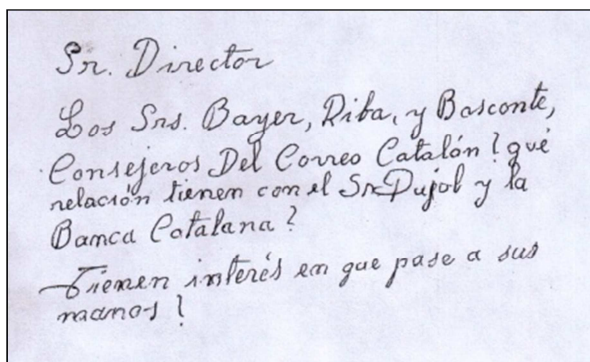 Sr. Director
Los Srs. Bayer, Riba, y Basconte,
Consejeros Del Correo Catalán? qué
relación tienen con el Sr. Pujol y la
Banca Catalana?
Tienen interés en que pase a sus
manos?